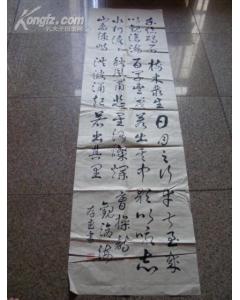 东临碣石 树木丛生 日月之行 幸甚至哉
以观沧海 百草丰茂 若出其中 歌以咏志
水何澹澹 秋风萧瑟 星汉灿烂 曹操诗
山岛竦峙 洪波涌起 若出其里 观沧海
孔夫子旧书网